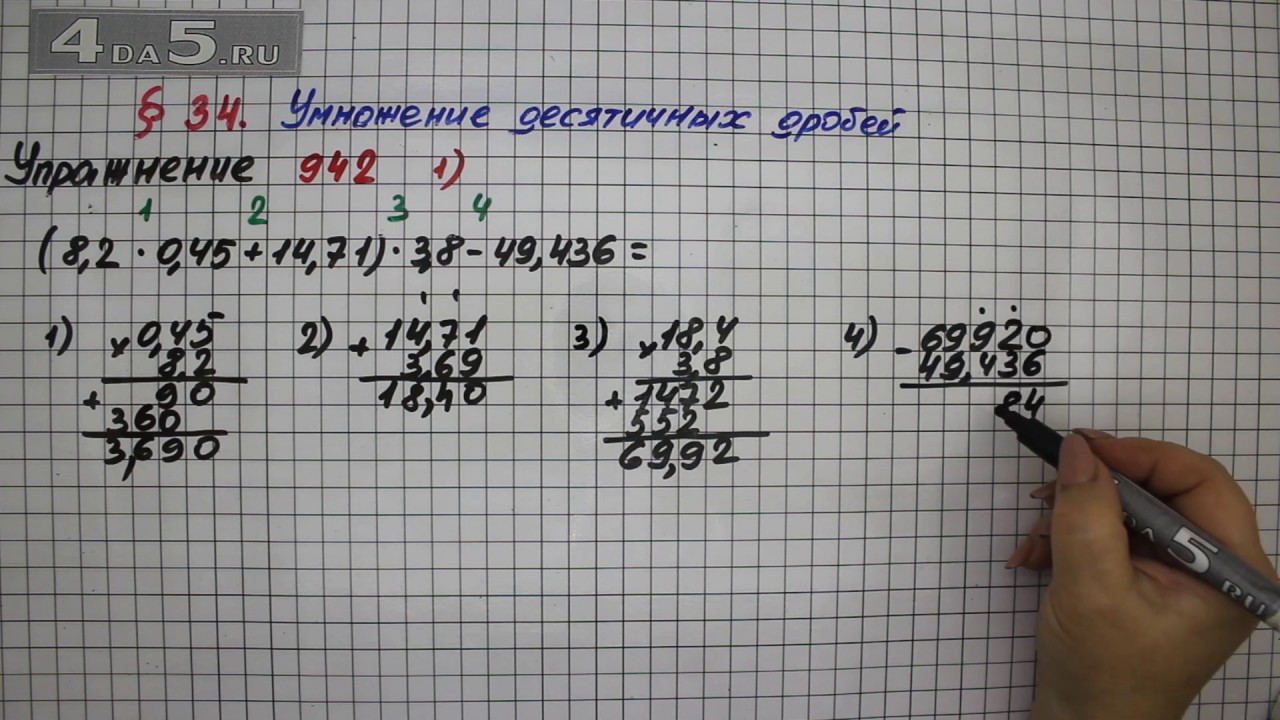 4DA5.RU
§ 34. Умножение десятичных дробей
Упражнение 942 1)
1 2 3 4
(8,2 · 0,45 + 14,71) · 3,8 - 49,436 =
1)
× 0,45
8,2
+ 90
360
3,690
2)
+ 14,71
3,69
18,40
3)
× 18,4
3,8
+ 1472
552
69,92
4)
- 69920
49,436
84
DA5.RU